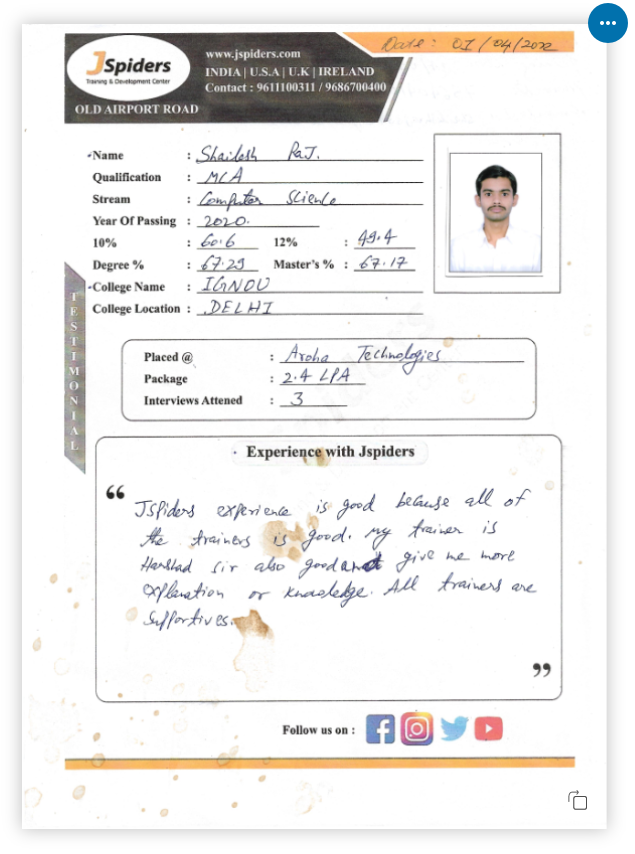 Date : 01/04/2022
JSpiders
Training & Development Center
OLD AIRPORT ROAD
www.jspiders.com
INDIA | U.S.A | U.K | IRELAND
Contact : 9611100311 / 9686700400
Name : Shailesh Raj.
Qualification : MCA
Stream : Computer Science
Year Of Passing : 2020.
10% : 60.6 12% : 49.4
Degree % : 67.29 Master's % : 67.17
College Name : IGNOU
College Location : DELHI
TESTIMONIAL
Placed @ : Aroha Technologies
Package : 2.4 LPA
Interviews Attened : 3
Experience with Jspiders
“
JSpiders experience is good because all of
the trainers is good. My trainer is
Harshad sir also good and give me more
explanation or knowledge. All trainers are
supportives.
”
Follow us on :